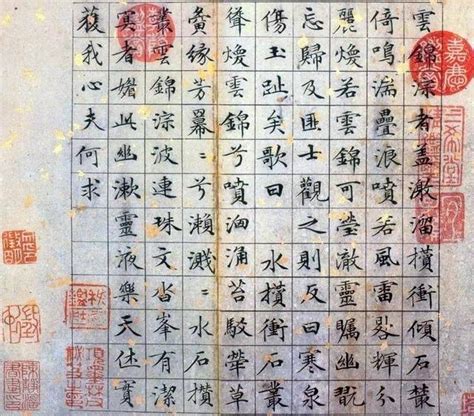 雲錦淙者蓋激溜攢衝傾石叢
倚鳴湍疊浪噴若風雷詭輝分
麗煥若雲錦可瑩徹靈矚幽翫
忘歸及匪士觀之則反曰寒泉
傷玉趾矣歌曰 水攢衝石叢
聳煥雲錦兮噴洶涌苔駁犖草
夤緣芳冪〻兮瀨濺〻水石攢
叢雲錦淙波連珠文沓峯有潔
冥者媚此幽漱靈液樂天休實
獲我心夫何求